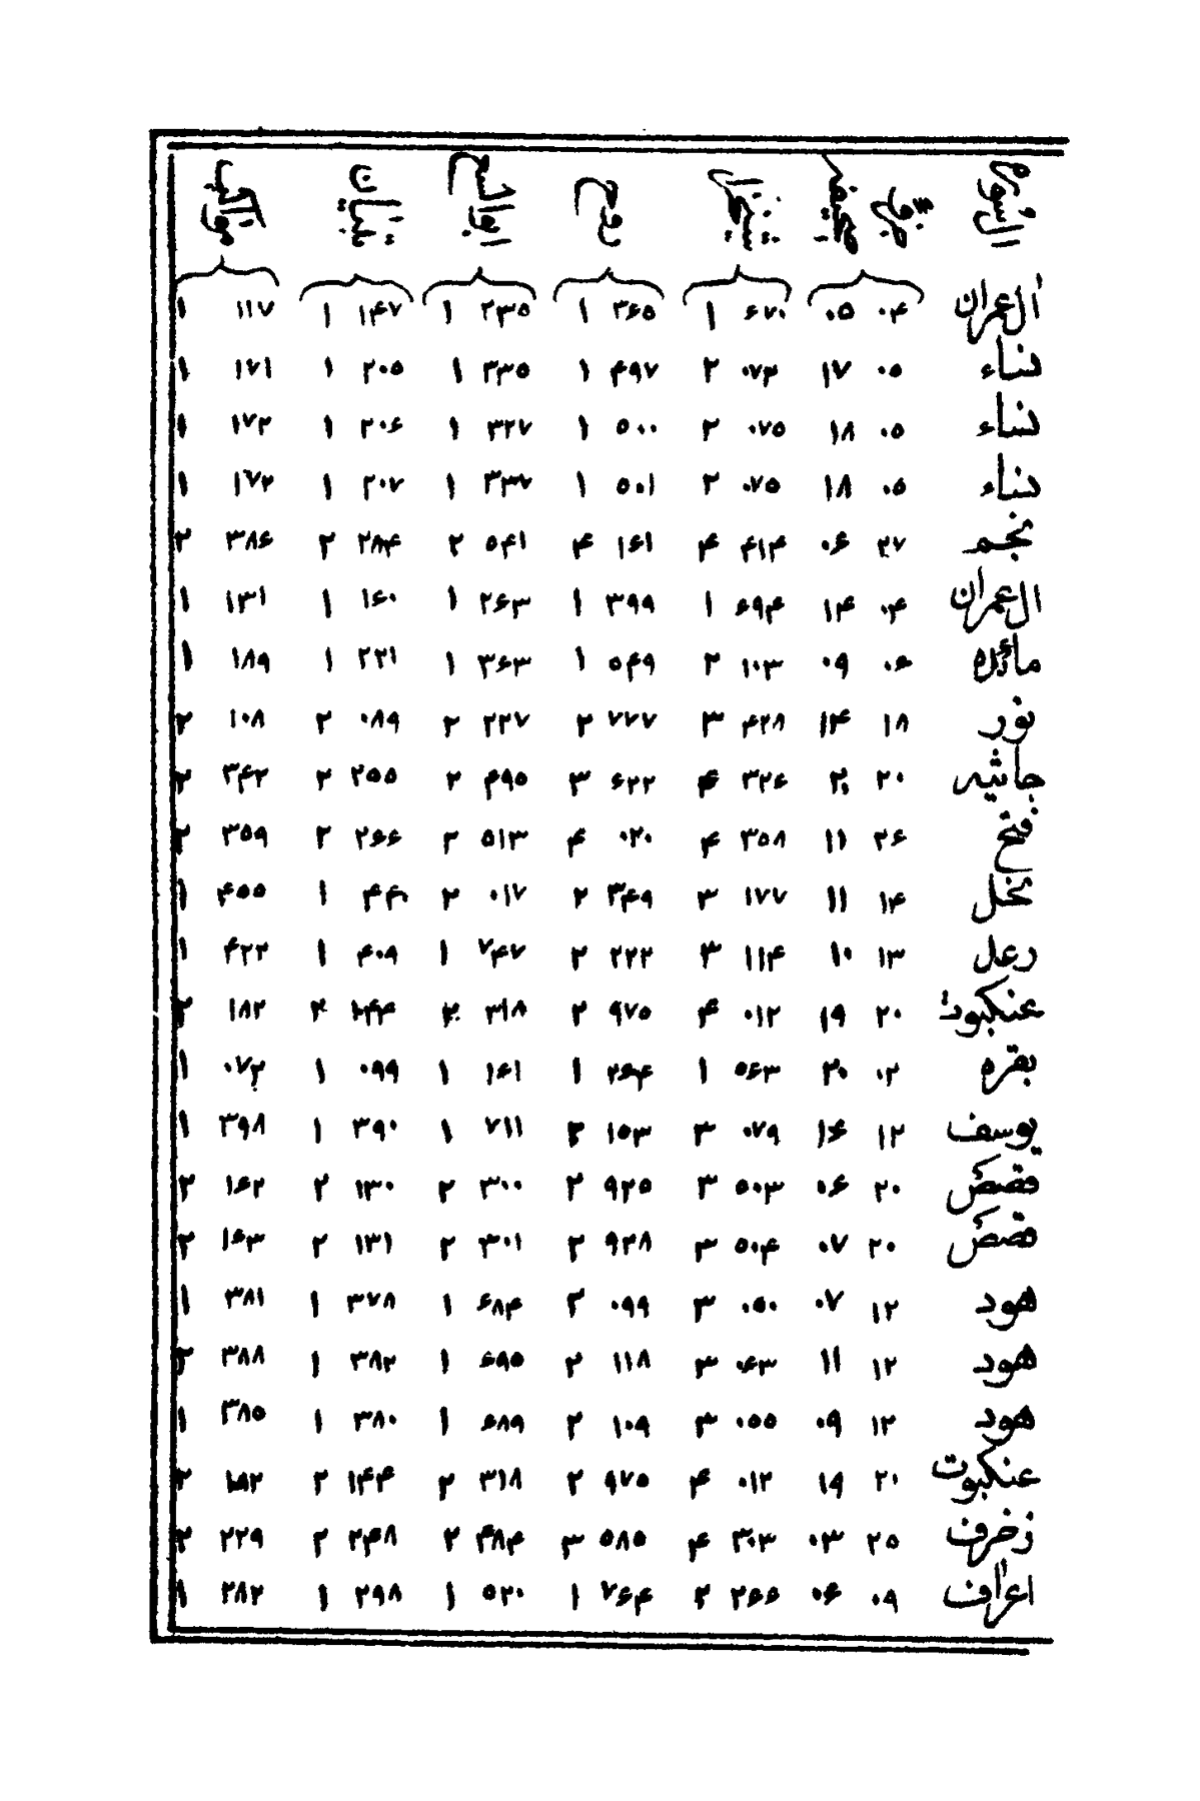 السوره جزو صفحه روح ابوالسعود تبيان مواكب
ال عمران ۰۴ ۰۵ ۶۷۰ ۱ ۳۶۵ ۱ ۲۳۵ ۱ ۱۴۷ ۱ ۱۱۷ ۱
نساء ۰۵ ۱۷ ۰۷۳ ۲ ۴۹۷ ۱ ۳۳۵ ۱ ۲۰۵ ۱ ۱۷۱ ۱
نساء ۰۵ ۱۸ ۰۷۵ ۲ ۵۰۰ ۱ ۳۲۷ ۱ ۲۰۶ ۱ ۱۷۲ ۱
نساء ۰۵ ۱۸ ۰۷۵ ۲ ۵۰۱ ۱ ۳۳۷ ۱ ۲۰۷ ۱ ۱۷۲ ۱
نجم ۲۷ ۰۶ ۴۱۴ ۴ ۱۶۱ ۴ ۵۴۱ ۲ ۲۸۴ ۲ ۳۸۶ ۲
ال عمران ۰۴ ۱۴ ۶۹۴ ۱ ۳۹۹ ۱ ۲۶۳ ۱ ۱۶۰ ۱ ۱۳۱ ۱
مائده ۰۶ ۰۹ ۱۰۳ ۲ ۵۴۹ ۱ ۳۶۳ ۱ ۲۲۱ ۱ ۱۸۹ ۱
نور ۱۸ ۱۴ ۴۲۸ ۳ ۷۷۷ ۲ ۲۲۷ ۲ ۰۸۹ ۲ ۱۰۸ ۲
جاثيه ۲۰ ۲۰ ۳۲۶ ۴ ۶۲۲ ۳ ۴۹۵ ۲ ۲۵۵ ۲ ۳۴۲ ۲
فتح ۲۶ ۱۱ ۳۵۸ ۴ ۰۲۰ ۴ ۵۱۳ ۲ ۲۶۶ ۲ ۳۵۹ ۲
نحل ۱۴ ۱۱ ۱۷۷ ۳ ۳۴۹ ۲ ۰۱۷ ۲ ۴۴۰ ۱ ۴۵۵ ۱
رعل ۱۳ ۱۰ ۱۱۴ ۳ ۲۲۲ ۲ ۷۴۷ ۱ ۴۰۹ ۱ ۴۲۲ ۱
عنكبوت ۲۰ ۱۹ ۰۱۲ ۴ ۹۷۵ ۲ ۳۱۸ ۲ ۱۴۴ ۲ ۱۸۲ ۲
بقره ۰۲ ۲۰ ۵۶۳ ۱ ۲۶۴ ۱ ۱۶۱ ۱ ۰۹۹ ۱ ۰۷۲ ۱
يوسف ۱۲ ۱۶ ۰۷۹ ۳ ۱۵۳ ۲ ۷۱۱ ۱ ۳۹۰ ۱ ۳۹۸ ۱
قصص ۲۰ ۰۶ ۵۰۳ ۳ ۹۲۵ ۲ ۳۰۰ ۲ ۱۳۰ ۲ ۱۶۲ ۲
قصص ۲۰ ۰۷ ۵۰۴ ۳ ۹۲۸ ۲ ۳۰۱ ۲ ۱۳۱ ۲ ۱۶۳ ۲
هود ۱۲ ۰۷ ۰۵۰ ۳ ۰۹۹ ۲ ۶۸۴ ۱ ۳۷۸ ۱ ۳۸۱ ۱
هود ۱۲ ۱۱ ۰۶۳ ۳ ۱۱۸ ۲ ۶۹۵ ۱ ۳۸۲ ۱ ۳۸۸ ۲
هود ۱۲ ۰۹ ۰۵۵ ۳ ۱۰۹ ۲ ۶۸۹ ۱ ۳۸۰ ۱ ۳۸۵ ۱
عنكبوت ۲۰ ۱۹ ۰۱۲ ۴ ۹۷۵ ۲ ۳۱۸ ۲ ۱۴۴ ۲ ۱۸۲ ۲
زخرف ۲۵ ۰۳ ۳۰۳ ۴ ۵۸۵ ۳ ۴۸۴ ۲ ۲۴۸ ۲ ۲۲۹ ۲
اعراف ۰۹ ۰۶ ۲۶۶ ۲ ۷۶۴ ۱ ۵۲۰ ۱ ۲۹۸ ۱ ۲۸۲ ۱